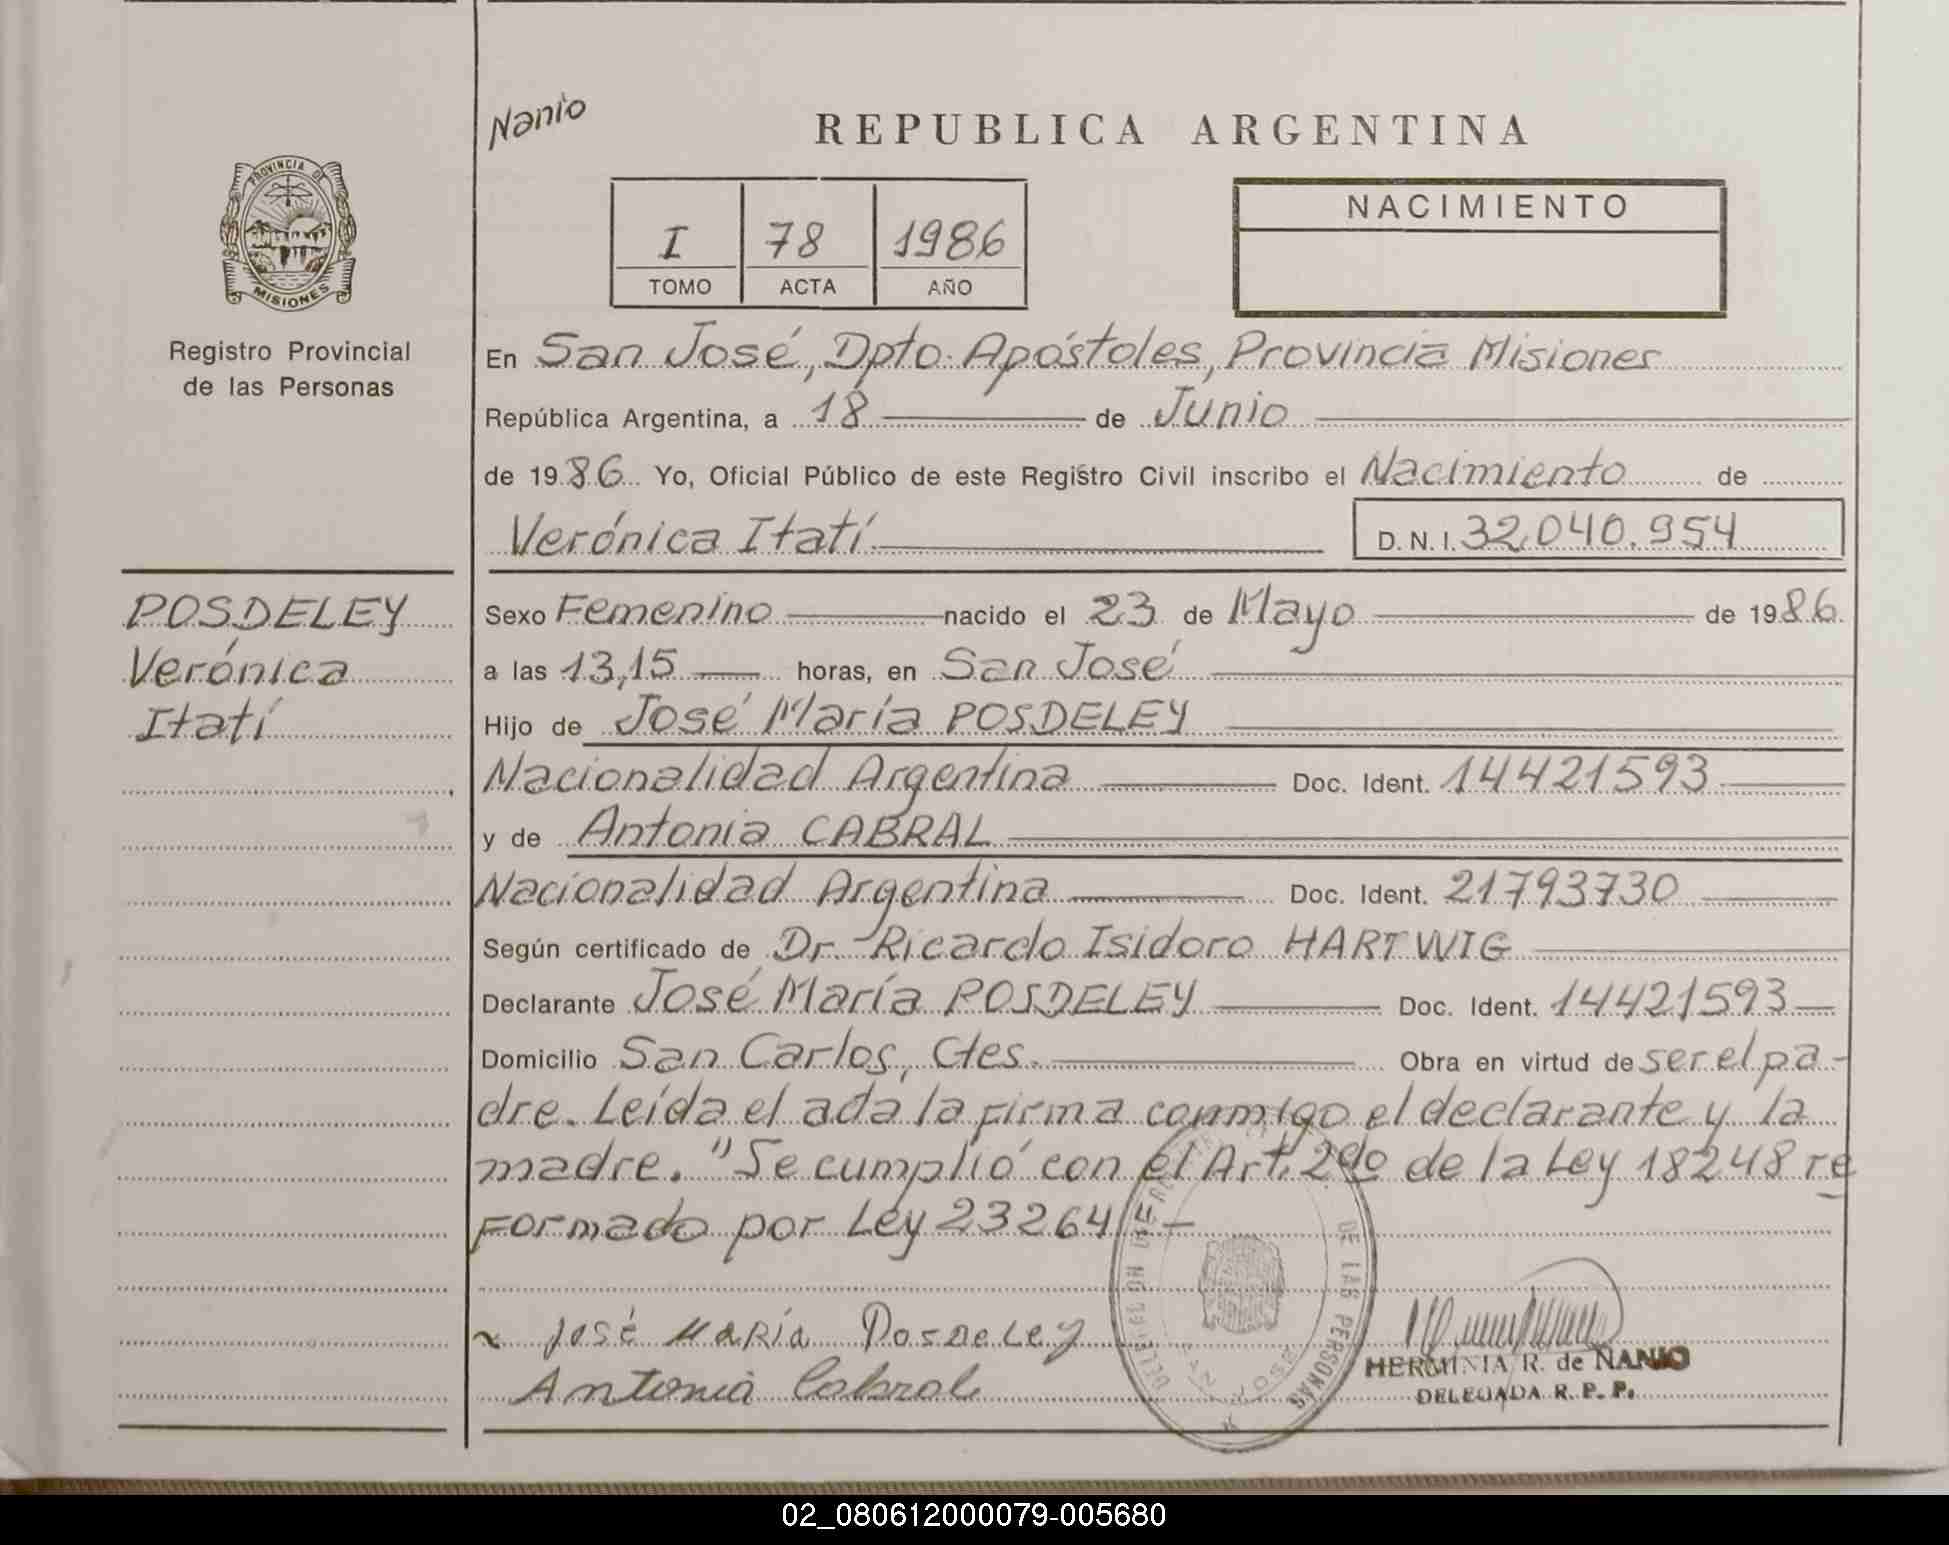 Nanio
REPUBLICA ARGENTINA
PROVINCIA DE
MISIONES
Registro Provincial
de las Personas
I 78 1986
TOMO ACTA AÑO
NACIMIENTO
En San José, Dpto. Apóstoles, Provincia Misiones
República Argentina, a 18 de Junio
de 1986 Yo, Oficial Público de este Registro Civil inscribo el Nacimiento de
Verónica Itatí D. N. I. 32.040.954
POSDELEY
Verónica
Itatí
Sexo Femenino nacido el 23 de Mayo de 1986
a las 13,15 horas, en San José
Hijo de José María POSDELEY
Nacionalidad Argentina Doc. Ident. 14421593
y de Antonia CABRAL
Nacionalidad Argentina Doc. Ident. 21793730
Según certificado de Dr. Ricardo Isidoro HARTWIG
Declarante José María POSDELEY Doc. Ident. 14421593
Domicilio San Carlos, Ctes. Obra en virtud de ser el pa-
dre. Leída el acta la firma conmigo el declarante y la
madre. "Se cumplió con el Art. 2do de la Ley 18248 re
formado por Ley 23264
José María Posdeley
Antonia Cabral
DE LAS PERSONAS
HERMINIA R. de NANIO
DELEGADA R. P. P.
02_080612000079-005680